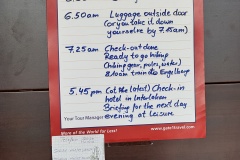 6.50am Luggage outside door
(or you take it down
yourselve by 7.25am)
7.25am Check-out done
Ready to go hiking
(hiking gear, pulss, water)
8:10am train to Engelberg
5.45pm (at the latest) Check-in
hotel in Interlaken
Briefing for the next day
evening at leisure
Your Tour Manager
More of the World for Less! www.gate1travel.com